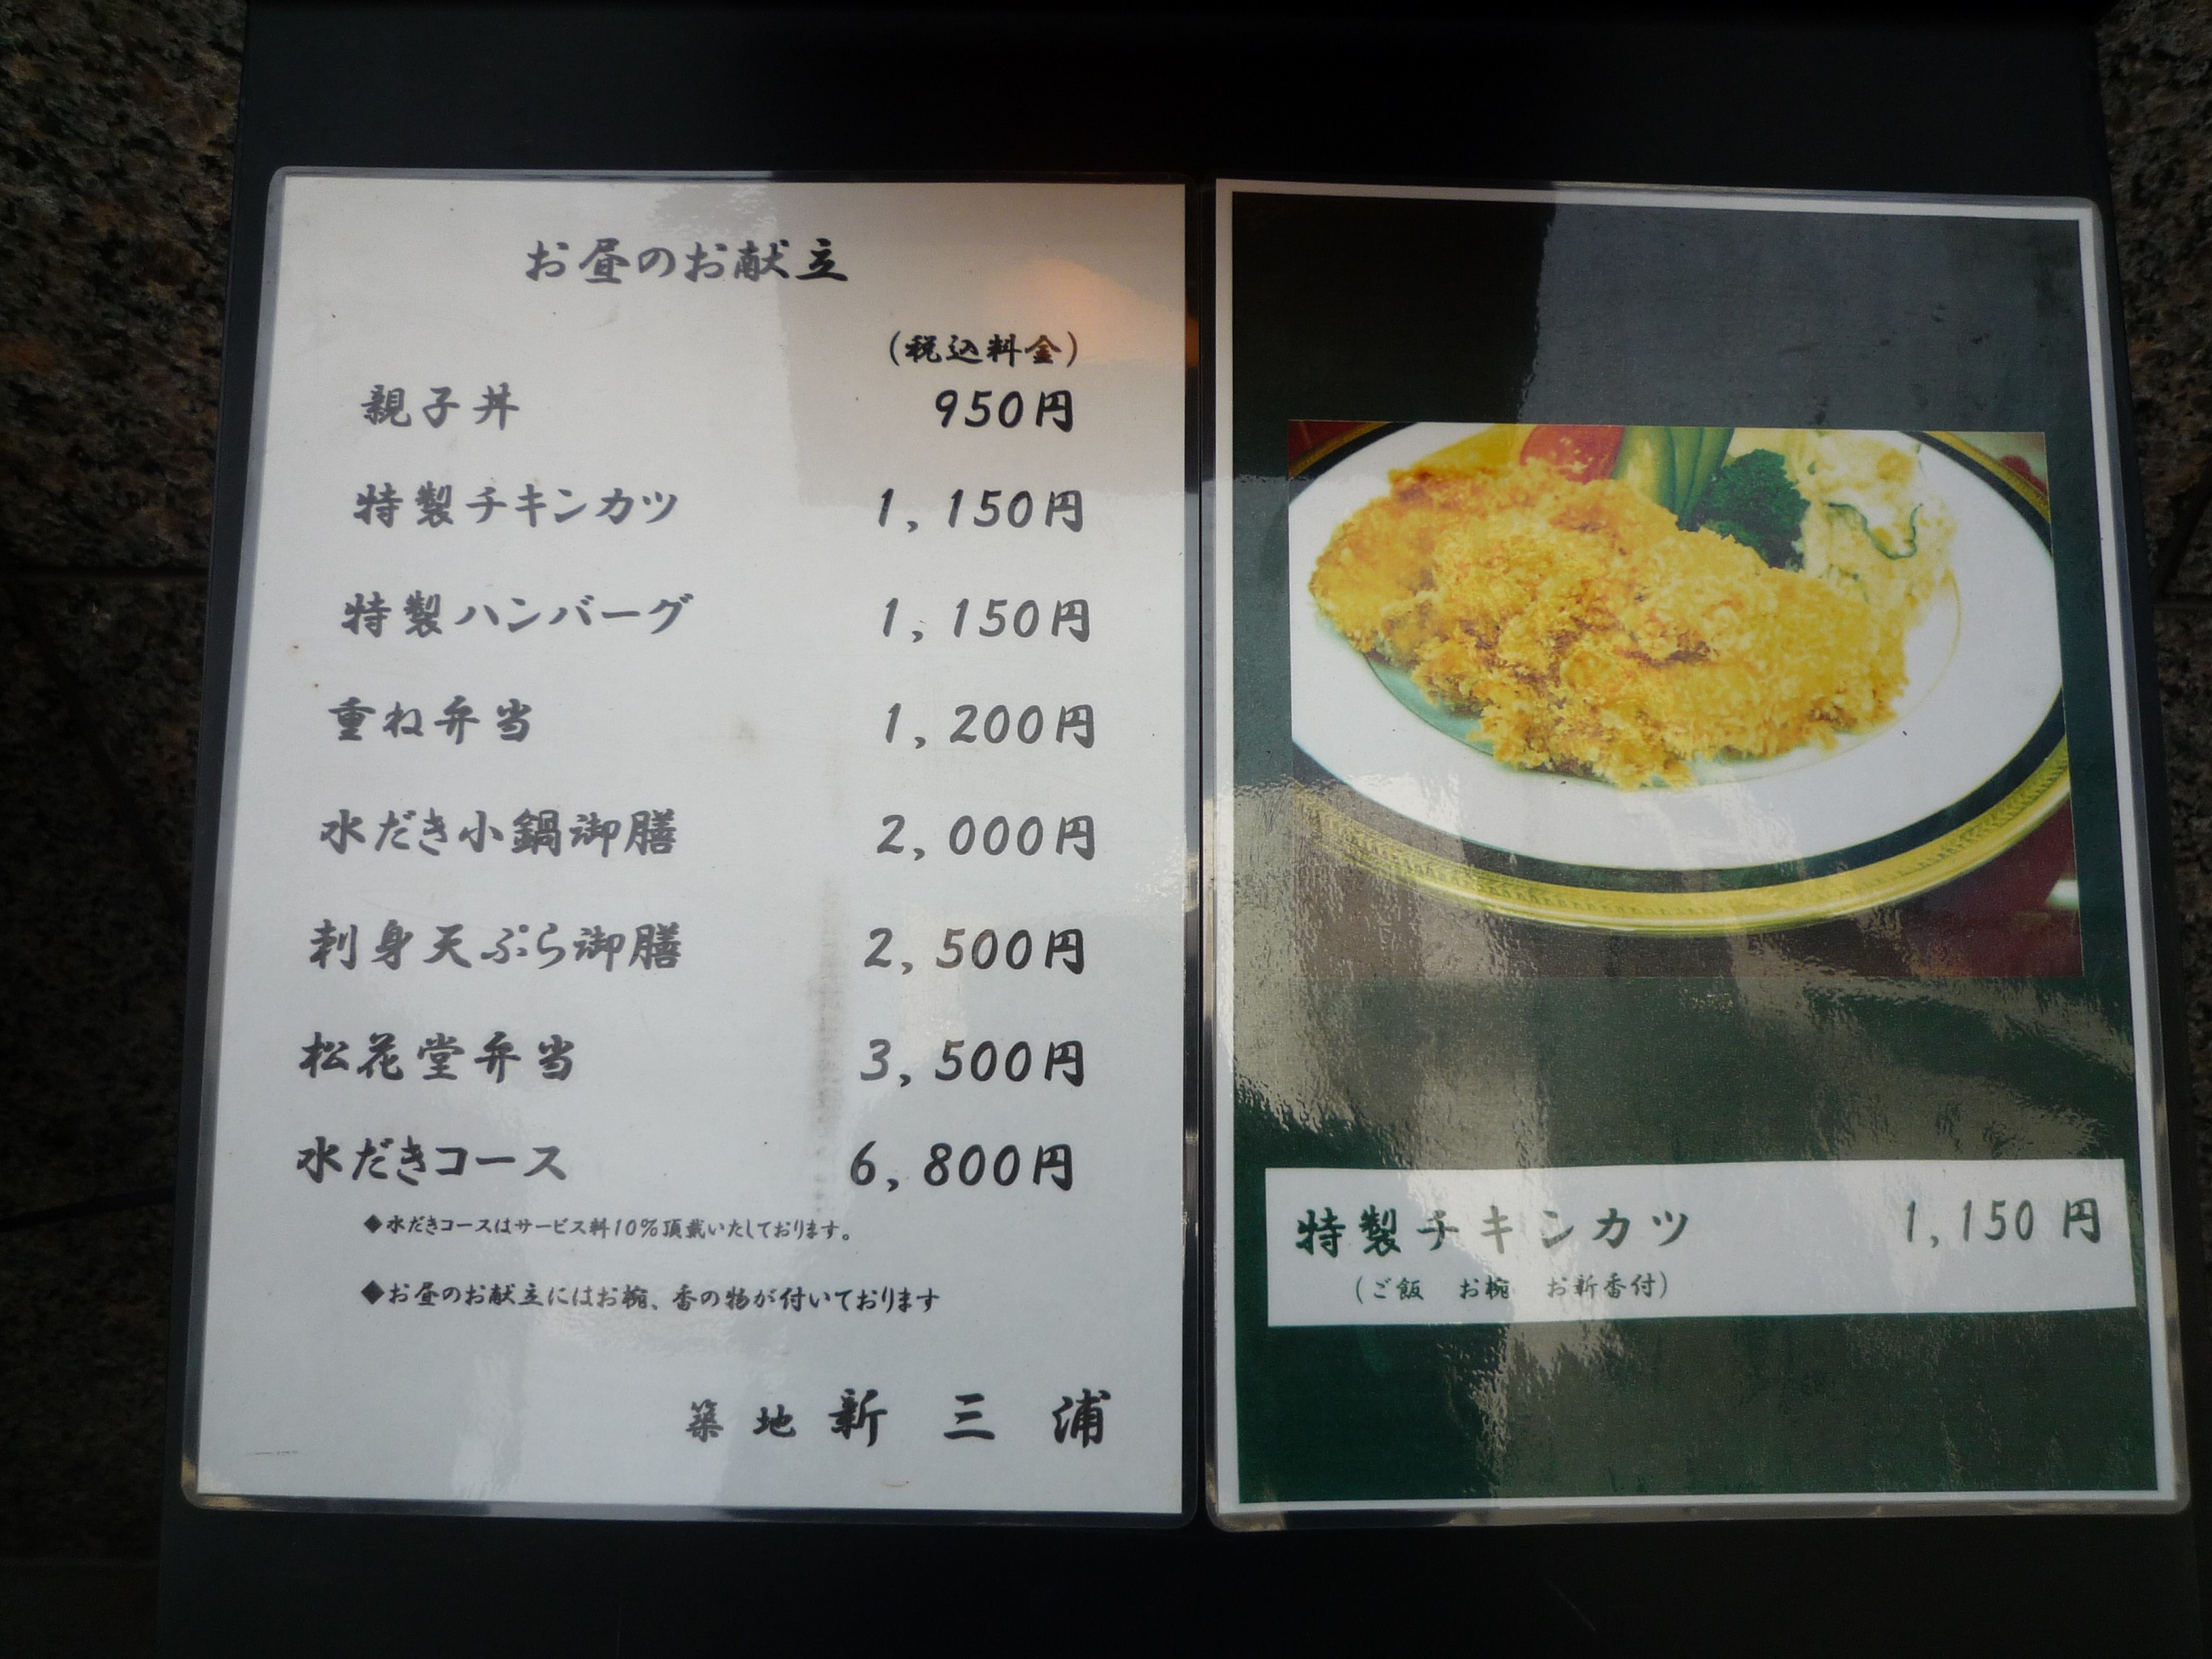 お昼のお献立
(税込料金)
親子丼 950円
特製チキンカツ 1,150円
特製ハンバーグ 1,150円
重ね弁当 1,200円
水だき小鍋御膳 2,000円
刺身天ぷら御膳 2,500円
松花堂弁当 3,500円
水だきコース 6,800円
◆水だきコースはサービス料10%頂戴いたしております。
◆お昼のお献立にはお椀、香の物が付いております
築地 新三浦
特製チキンカツ 1,150円
(ご飯 お椀 お新香付)